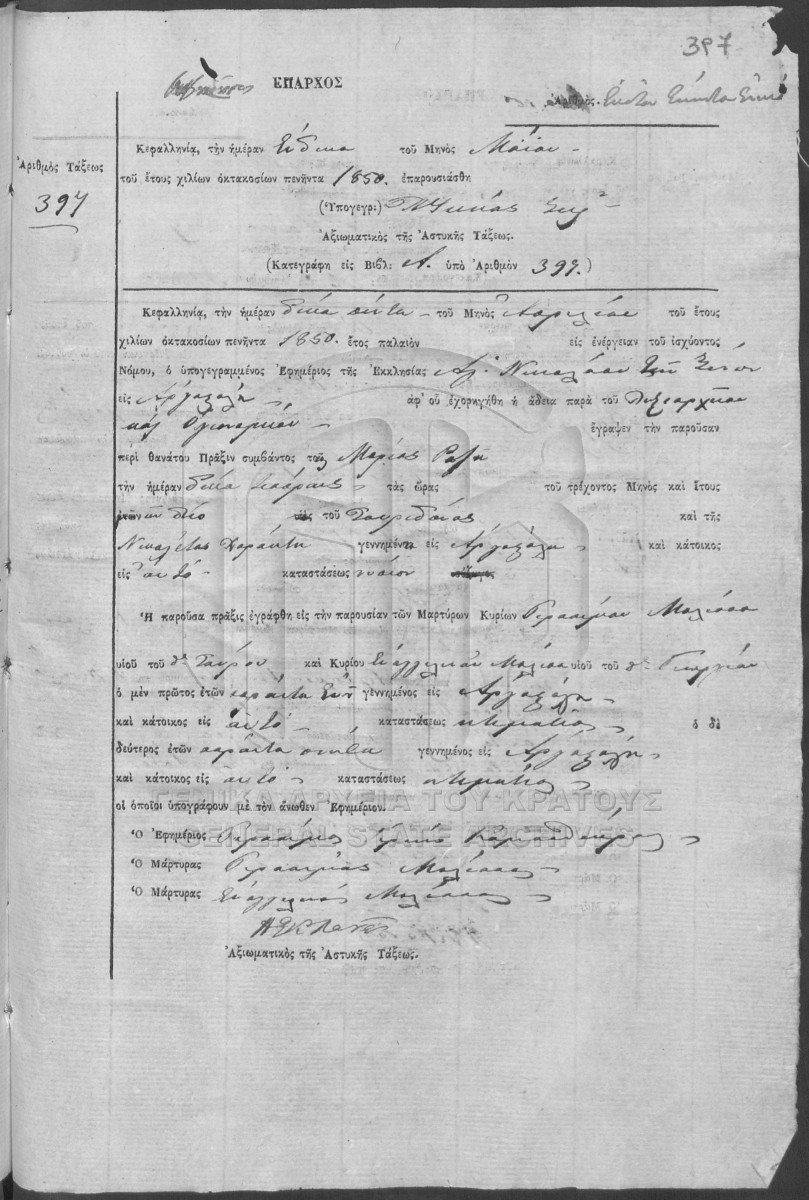 397
ΕΠΑΡΧΟΣ
Ἀριθμὸς.
Ἀριθμὸς Τάξεως
397
Κεφαλληνίᾳ, τὴν ἡμέραν ἕνδεκα τοῦ Μηνὸς Μαΐου
τοῦ ἔτους χιλίων ὀκτακοσίων πενῆντα 1850. ἐπαρουσιάσθη
(Ὑπογεγρ:)
Ἀξιωματικὸς τῆς Ἀστυκῆς Τάξεως.
(Κατεγράφη εἰς Βιβλ: Α. ὑπὸ Ἀριθμὸν 397.)
Κεφαλληνίᾳ, τὴν ἡμέραν δέκα πέντε τοῦ Μηνὸς Ἀπριλίου τοῦ ἔτους
χιλίων ὀκτακοσίων πενῆντα 1850. ἔτος παλαιὸν εἰς ἐνέργειαν τοῦ ἰσχύοντος
Νόμου, ὁ ὑπογεγραμμένος Ἐφημέριος τῆς Ἐκκλησίας Ἁγ. Νικολάου τῶν Ξένων
εἰς Ἀργοστόλι ἀφ' οὗ ἐχορηγήθη ἡ ἄδεια παρὰ τοῦ
καὶ ἔγραψεν τὴν παροῦσαν
περὶ θανάτου Πρᾶξιν συμβάντος τοῦ Μαρίας
τὴν ἡμέραν δέκα τὰς ὥρας τοῦ τρέχοντος Μηνὸς καὶ ἔτους
ἐτῶν δύο τοῦ Σπυρίδωνος καὶ τῆς
γεννημένη εἰς Ἀργοστόλι καὶ κάτοικος
εἰς αὐτό καταστάσεως
Ἡ παροῦσα πρᾶξις ἐγράφθη εἰς τὴν παρουσίαν τῶν Μαρτύρων Κυρίων Γερασίμου
υἱοῦ τοῦ Σπύρου καὶ Κυρίου Εὐαγγελινοῦ υἱοῦ τοῦ Γεωργίου
ὁ μὲν πρῶτος ἐτῶν σαράντα γεννημένος εἰς Ἀργοστόλι
καὶ κάτοικος εἰς αὐτό καταστάσεως κτηματίας ὁ δὲ
δεύτερος ἐτῶν σαράντα πέντε γεννημένος εἰς Ἀργοστόλι
καὶ κάτοικος εἰς αὐτό καταστάσεως κτηματίας
οἱ ὁποῖοι ὑπογράφουν μὲ τὸν ἄνωθεν Ἐφημέριον.
ΓΕΝΙΚΑ ΑΡΧΕΙΑ ΤΟΥ ΚΡΑΤΟΥΣ
GENERAL STATE ARCHIVES
Ὁ Ἐφημέριος Γεράσιμος
Ὁ Μάρτυρας Γεράσιμος
Ὁ Μάρτυρας Εὐαγγελινός
Ἀξιωματικὸς τῆς Ἀστυκῆς Τάξεως.